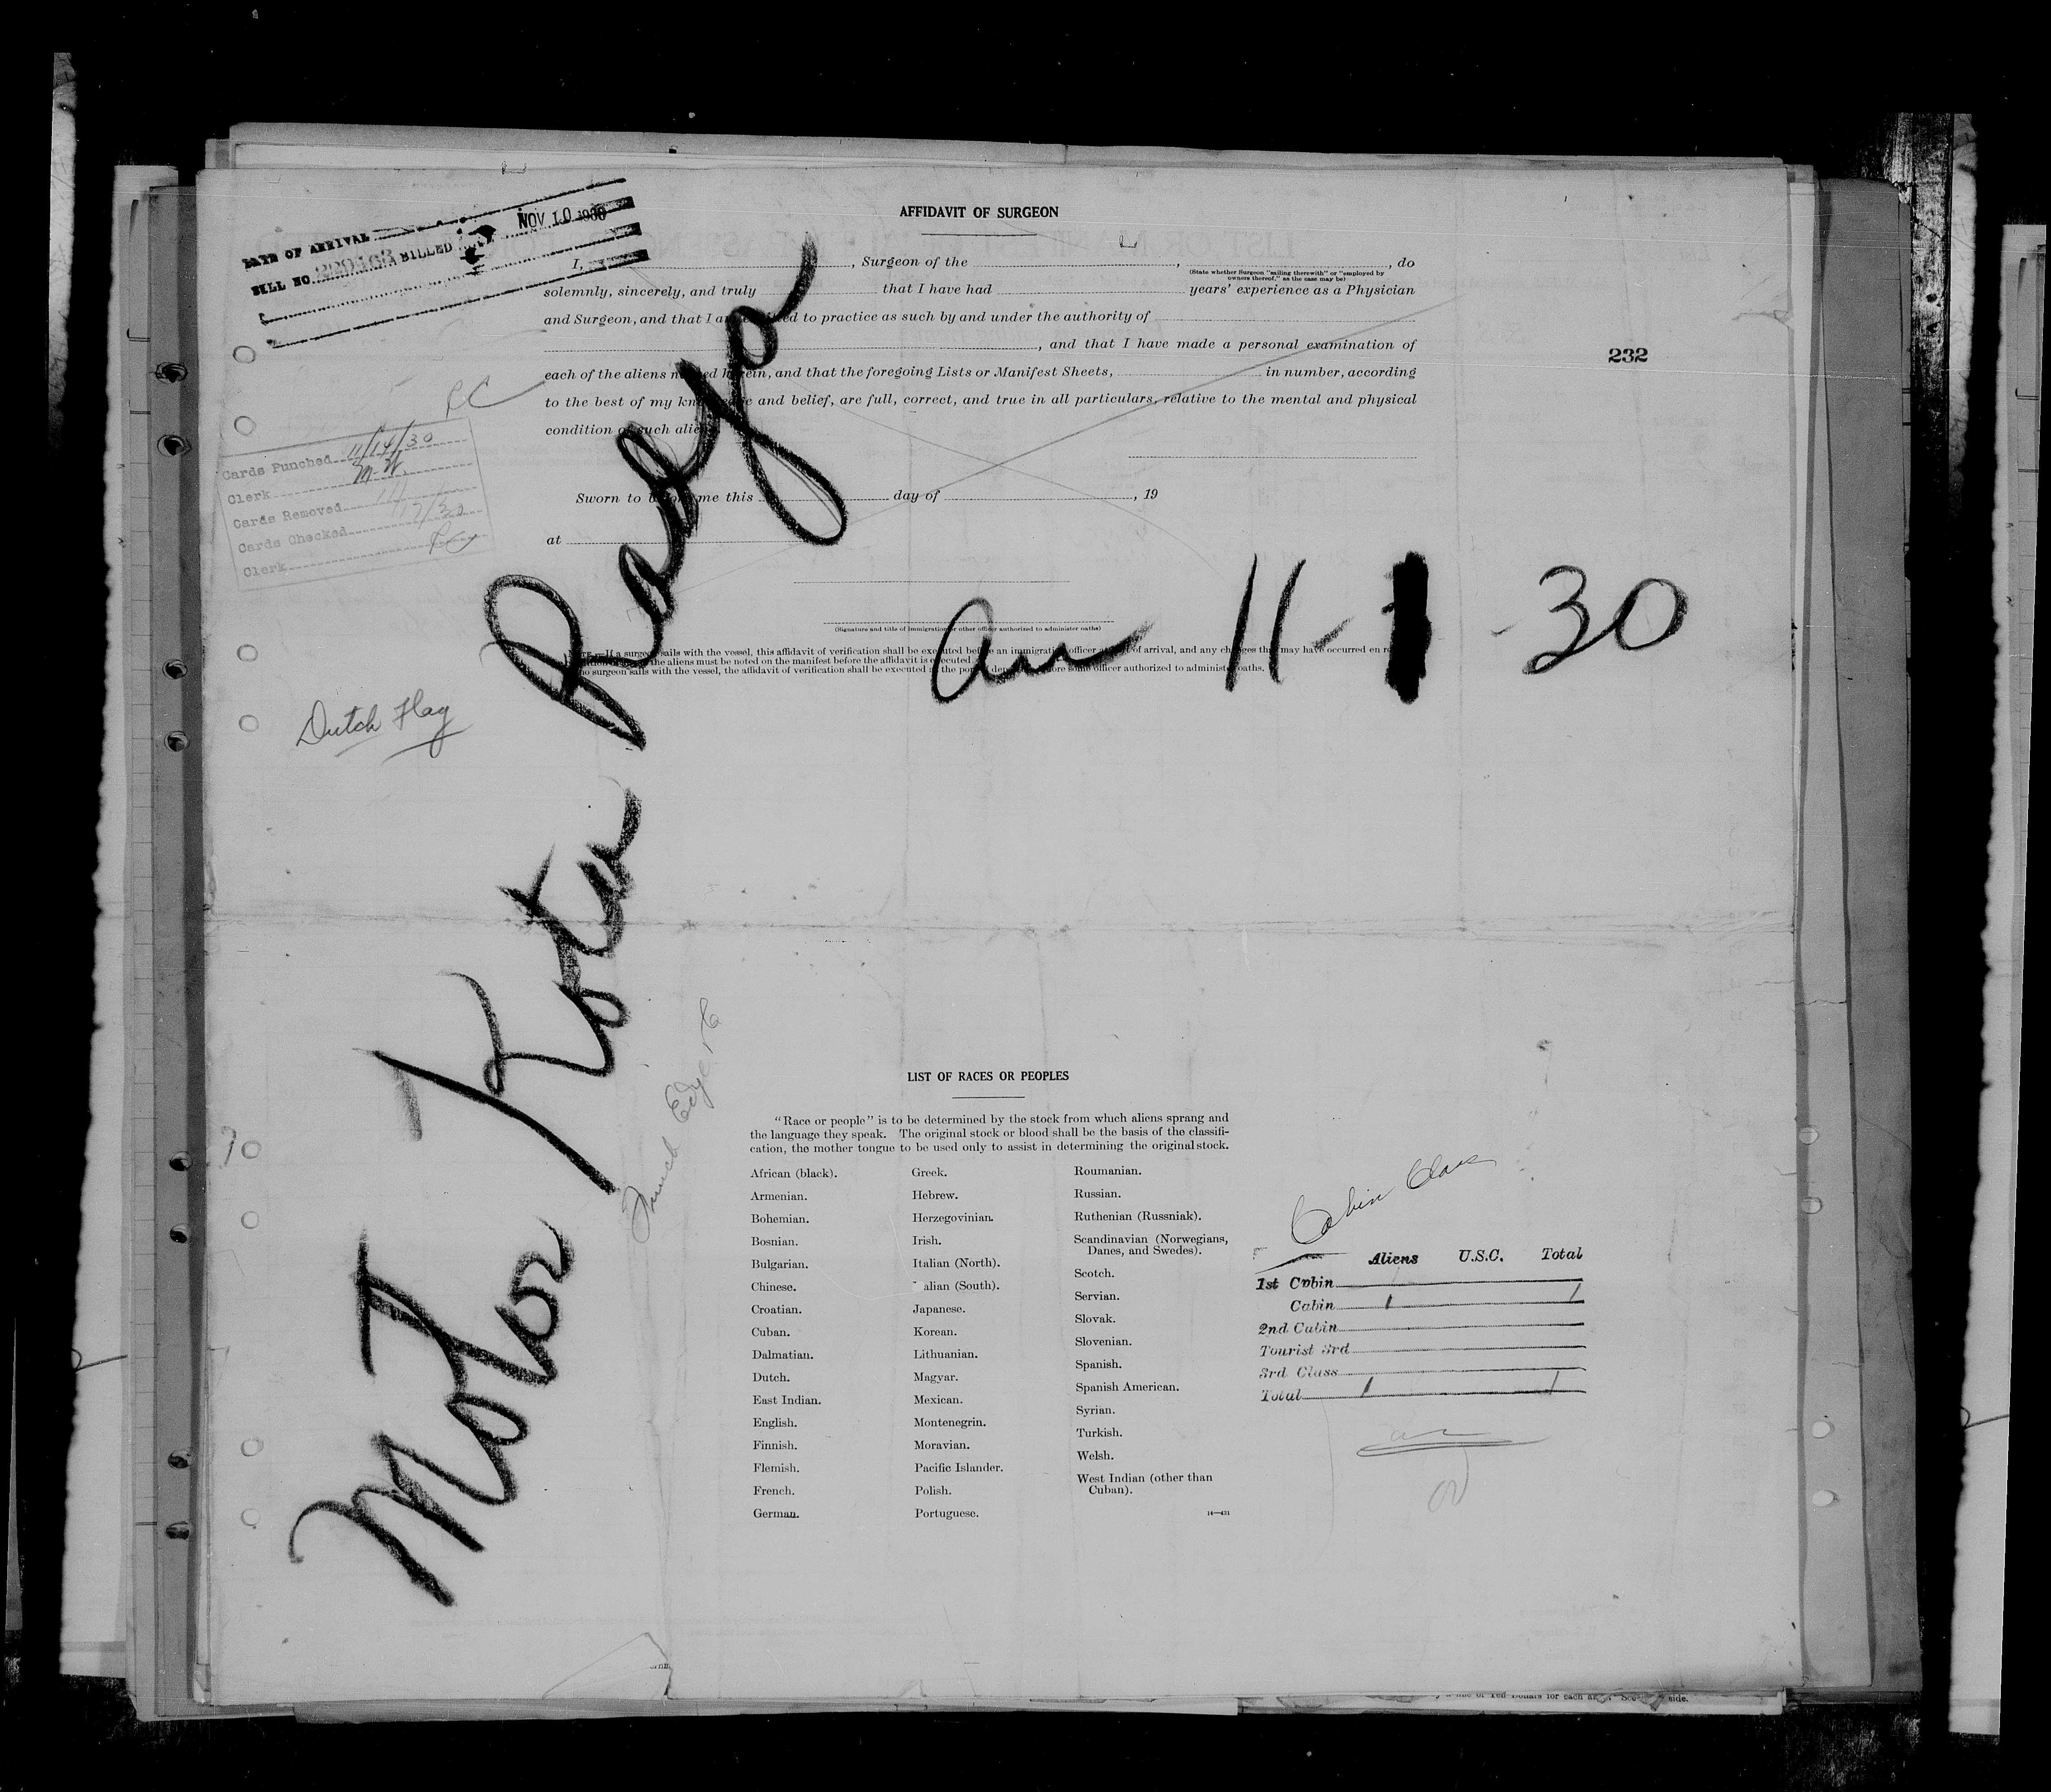 DATE OF ARRIVAL
NOV 10 1930
BILL NO. 229163 BILLED
AFFIDAVIT OF SURGEON
I, , Surgeon of the , , do
(State whether Surgeon "sailing therewith" or "employed by
owners thereof," as the case may be)
solemnly, sincerely, and truly that I have had years' experience as a Physician
and Surgeon, and that I am to practice as such by and under the authority of
, and that I have made a personal examination of
232
each of the aliens named herein, and that the foregoing Lists or Manifest Sheets, in number, according
to the best of my knowledge and belief, are full, correct, and true in all particulars, relative to the mental and physical
condition of such aliens
Cards Punched 11/14/30
Clerk M.W.
Cards Removed
Cards Checked 11/17/30
Clerk
Sworn to before me this day of , 19
at
(Signature and title of immigration or other officer authorized to administer oaths)
NOTE.—If a surgeon sails with the vessel, this affidavit of verification shall be executed before an immigration officer at of arrival, and any changes that may have occurred en
the aliens must be noted on the manifest before the affidavit is executed
no surgeon sails with the vessel, the affidavit of verification shall be executed at the port of departure before some officer authorized to administer oaths.
Arr 11- -30
Dutch Flag
Motor Kota Radja
Funch Edye
LIST OF RACES OR PEOPLES
"Race or people" is to be determined by the stock from which aliens sprang and
the language they speak. The original stock or blood shall be the basis of the classifi-
cation, the mother tongue to be used only to assist in determining the original stock.
African (black).
Armenian.
Bohemian.
Bosnian.
Bulgarian.
Chinese.
Croatian.
Cuban.
Dalmatian.
Dutch.
East Indian.
English.
Finnish.
Flemish.
French.
German.
Greek.
Hebrew.
Herzegovinian.
Irish.
Italian (North).
alian (South).
Japanese.
Korean.
Lithuanian.
Magyar.
Mexican.
Montenegrin.
Moravian.
Pacific Islander.
Polish.
Portuguese.
Roumanian.
Russian.
Ruthenian (Russniak).
Scandinavian (Norwegians,
Danes, and Swedes).
Scotch.
Servian.
Slovak.
Slovenian.
Spanish.
Spanish American.
Syrian.
Turkish.
Welsh.
West Indian (other than
Cuban).
14—431
Cabin Class
Aliens U.S.C. Total
1st Cabin
Cabin 1 1
2nd Cabin
Tourist 3rd
3rd Class
Total 1 1